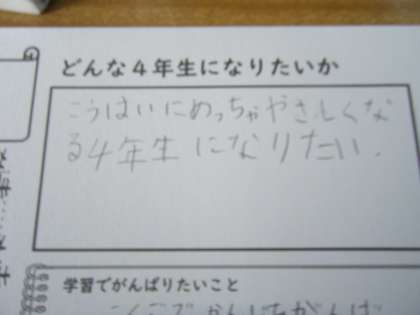 どんな4年生になりたいか
こうはいにめっちゃやさしくな
る4年生になりたい.
学習でがんばりたいこと